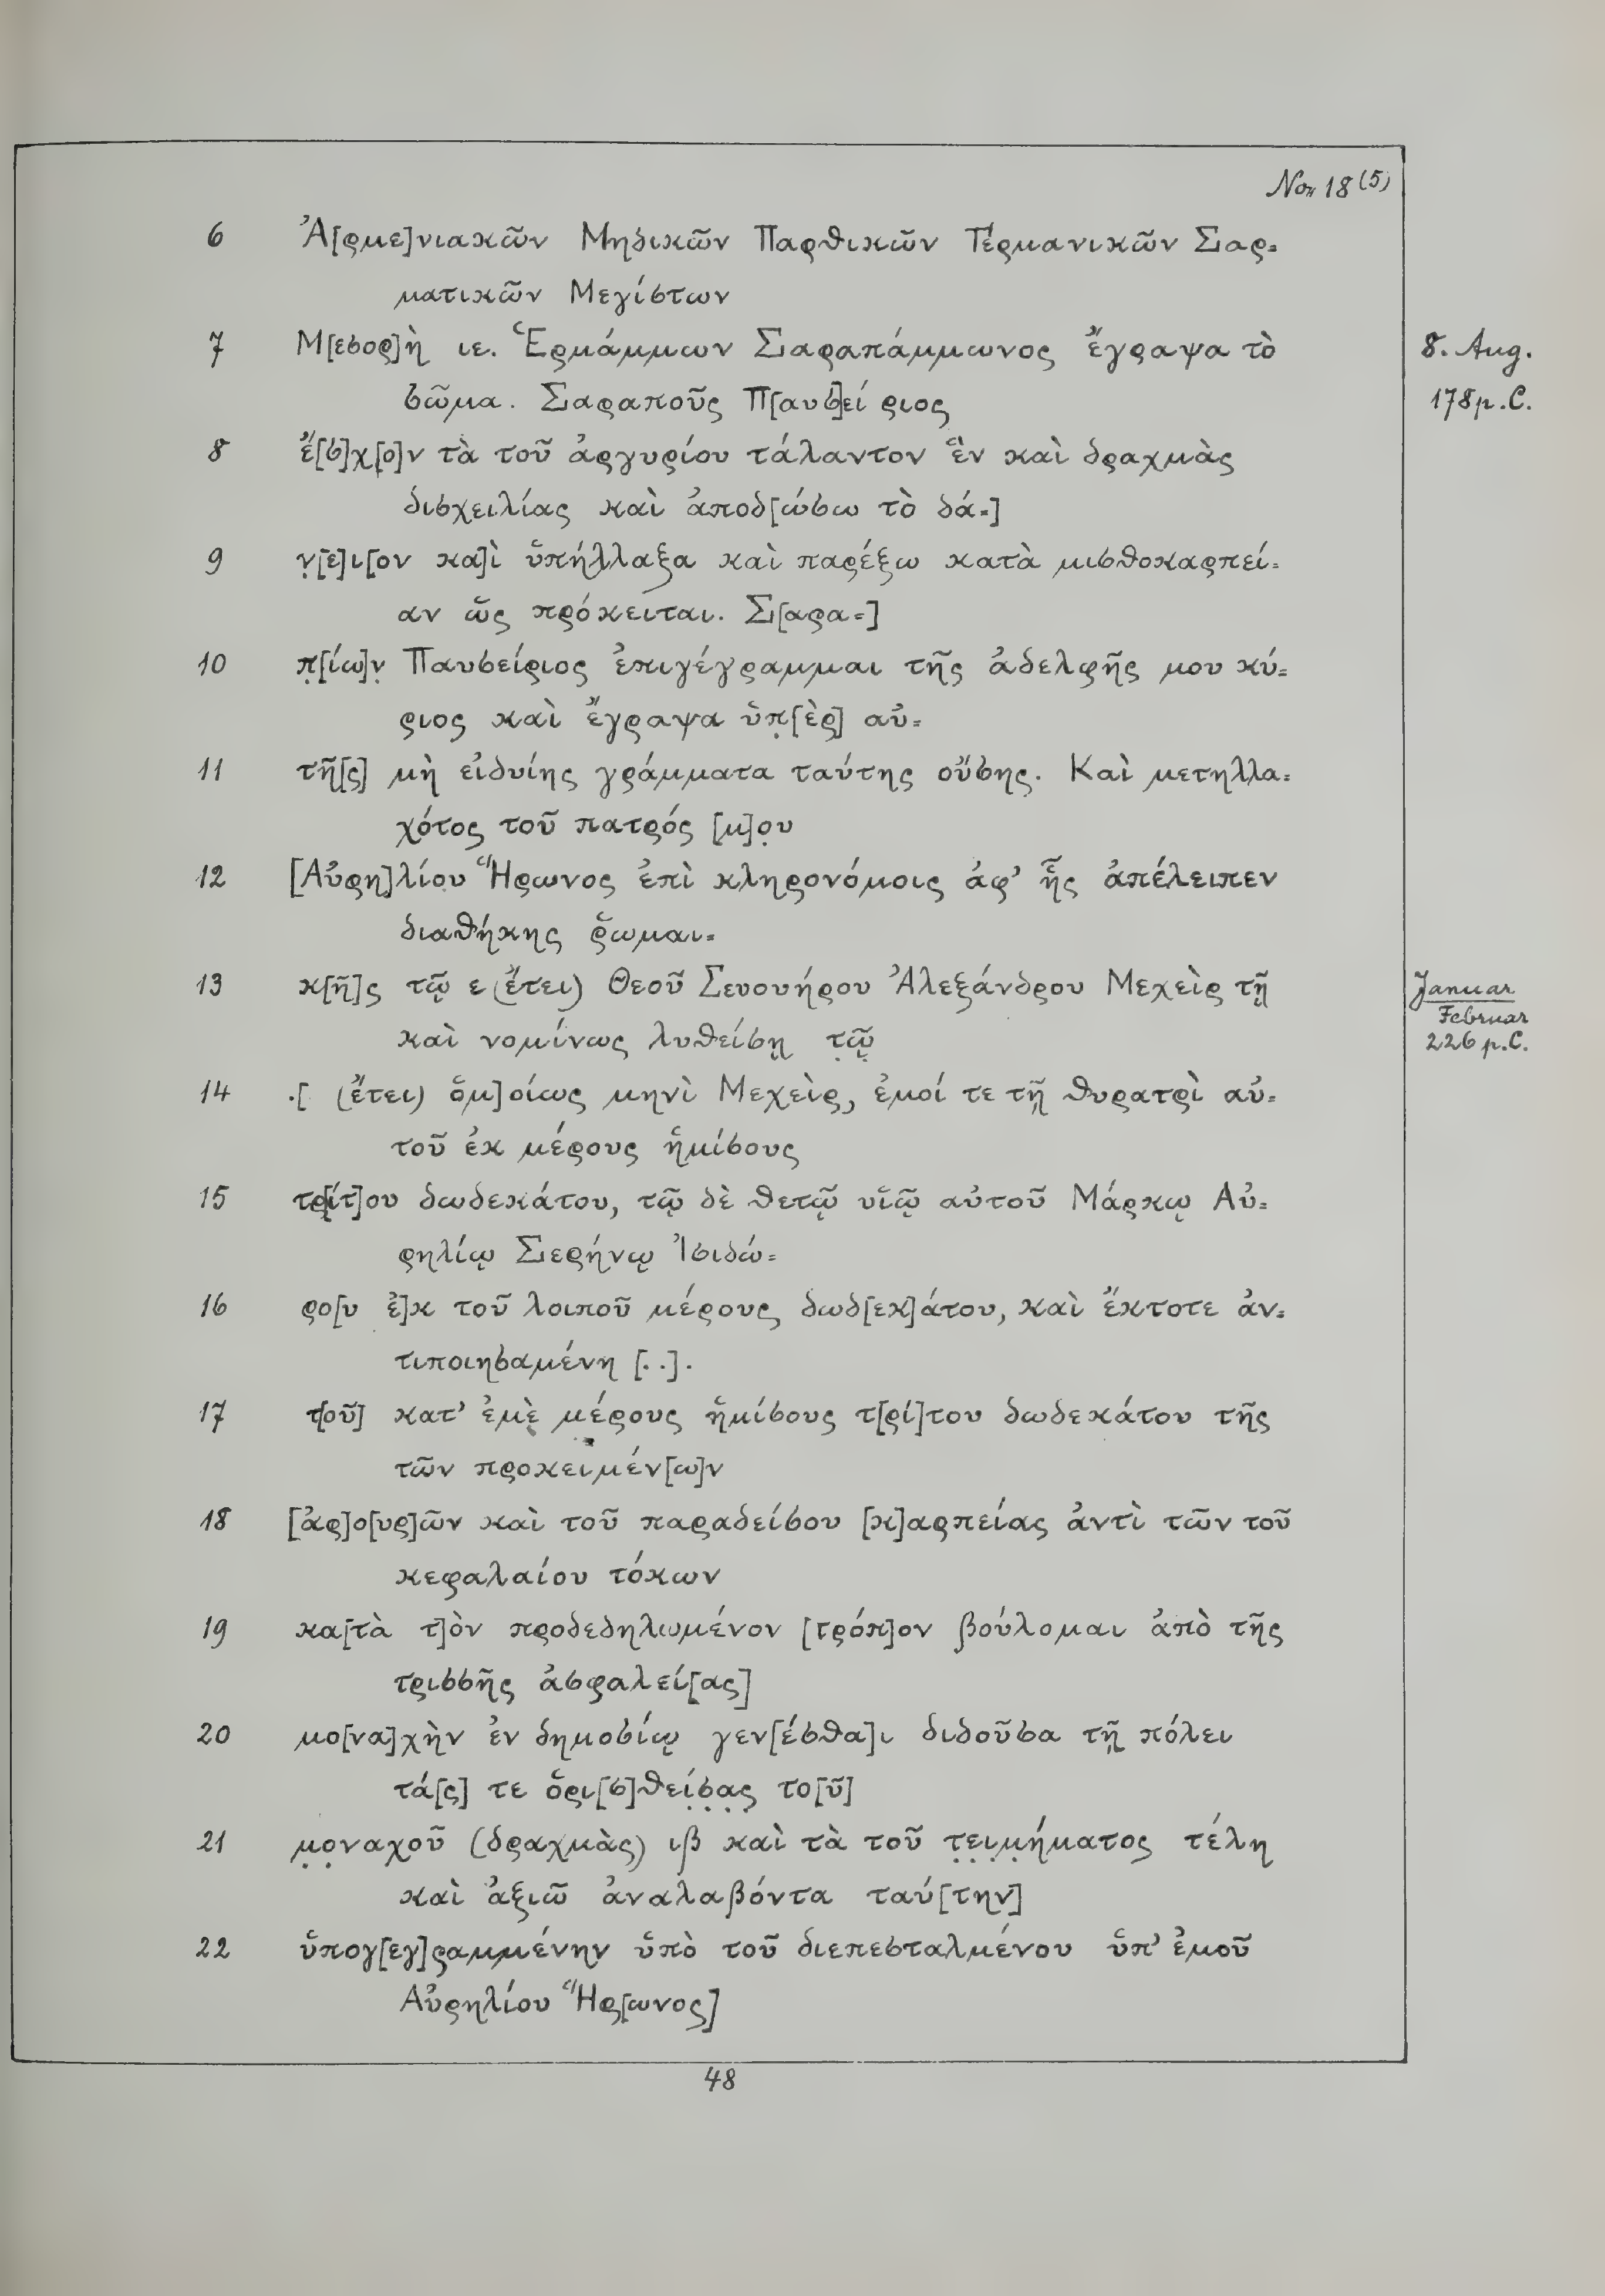 No. 18 (5)
6 Ἀ[ρμε]νιακῶν Μηδικῶν Παρθικῶν Γερμανικῶν Σαρ=
ματικῶν Μεγίστων
7 Μ[εσορ]ὴ ιε. Ἑρμάμμων Σαραπάμμωνος ἔγραψα τὸ 8. Aug.
σῶμα. Σαραποῦς Π[αυσ]εί ριος 178 p.C.
8 ἔ[σ]χ[ο]ν τὰ τοῦ ἀργυρίου τάλαντον ἓν καὶ δραχμὰς
δισχειλίας καὶ ἀποδ[ώσω τὸ δά=]
9 ν̣[ε]ι[ον κα]ὶ ὑπήλλαξα καὶ παρέξω κατὰ μισθοκαρπεί=
αν ὡς πρόκειται. Σ[αρα=]
10 π̣[ίω]ν̣ Παυσείριος ἐπιγέγραμμαι τῆς ἀδελφῆς μου κύ=
ριος καὶ ἔγραψα ὑπ̣[ὲρ] αὐ=
11 τῆ[ς] μὴ εἰδυίης γράμματα ταύτης οὔσης. Καὶ μετηλλα=
χότος τοῦ πατρός [μ]ο̣υ
12 [Αὐρη]λίου Ἥρωνος ἐπὶ κληρονόμοις ἀφ’ ἧς ἀπέλειπεν
διαθήκης ῥωμαι=
13 κ[ῆ]ς τῷ ε (ἔτει) Θεοῦ Σευουήρου Ἀλεξάνδρου Μεχεὶρ τῇ Januar
Februar
καὶ νομίνως λυθείσῃ τ̣ῷ̣ 226 p.C.
14 .[ (ἔτει) ὁμ]οίως μηνὶ Μεχεὶρ, ἐμοί τε τῇ θυρατρὶ αὐ=
τοῦ ἐκ μέρους ἡμίσους
15 τρ[ίτ]ου δωδεκάτου, τῷ δὲ θετῷ υἱῷ αὐτοῦ Μάρκῳ Αὐ=
ρηλίῳ Σερήνῳ Ἰσιδώ=
16 ρο[υ ἐ]κ τοῦ λοιποῦ μέρους δωδ[εκ]άτου, καὶ ἔκτοτε ἀν=
τιποιησαμένη [. .].
17 τ[οῦ] κατ’ ἐμὲ μέρους ἡμίσους τ[ρί]του δωδεκάτου τῆς
τῶν προκειμέν[ω]ν
18 [ἀρ]ο[υρ]ῶν καὶ τοῦ παραδείσου [κ]αρπείας ἀντὶ τῶν τοῦ
κεφαλαίου τόκων
19 κα[τὰ τ]ὸν προδεδηλωμένον [τρόπ]ον βούλομαι ἀπὸ τῆς
τρισσῆς ἀσφαλεί[ας]
20 μο[να]χὴν ἐν δημοσίῳ γεν[έσθα]ι διδοῦσα τῇ πόλει
τά[ς] τε ὁρι[σ]θεί̣σ̣α̣ς̣ το[ῦ]
21 μ̣ο̣ναχοῦ (δραχμὰς) ιβ καὶ τὰ τοῦ τ̣ε̣ι̣μ̣ήματος τέλη
καὶ ἀξιῶ ἀναλαβόντα ταύ[την]
22 ὑπογ[εγ]ραμμένην ὑπὸ τοῦ διεπεσταλμένου ὑπ’ ἐμοῦ
Αὐρηλίου Ἥρ[ωνος]
48